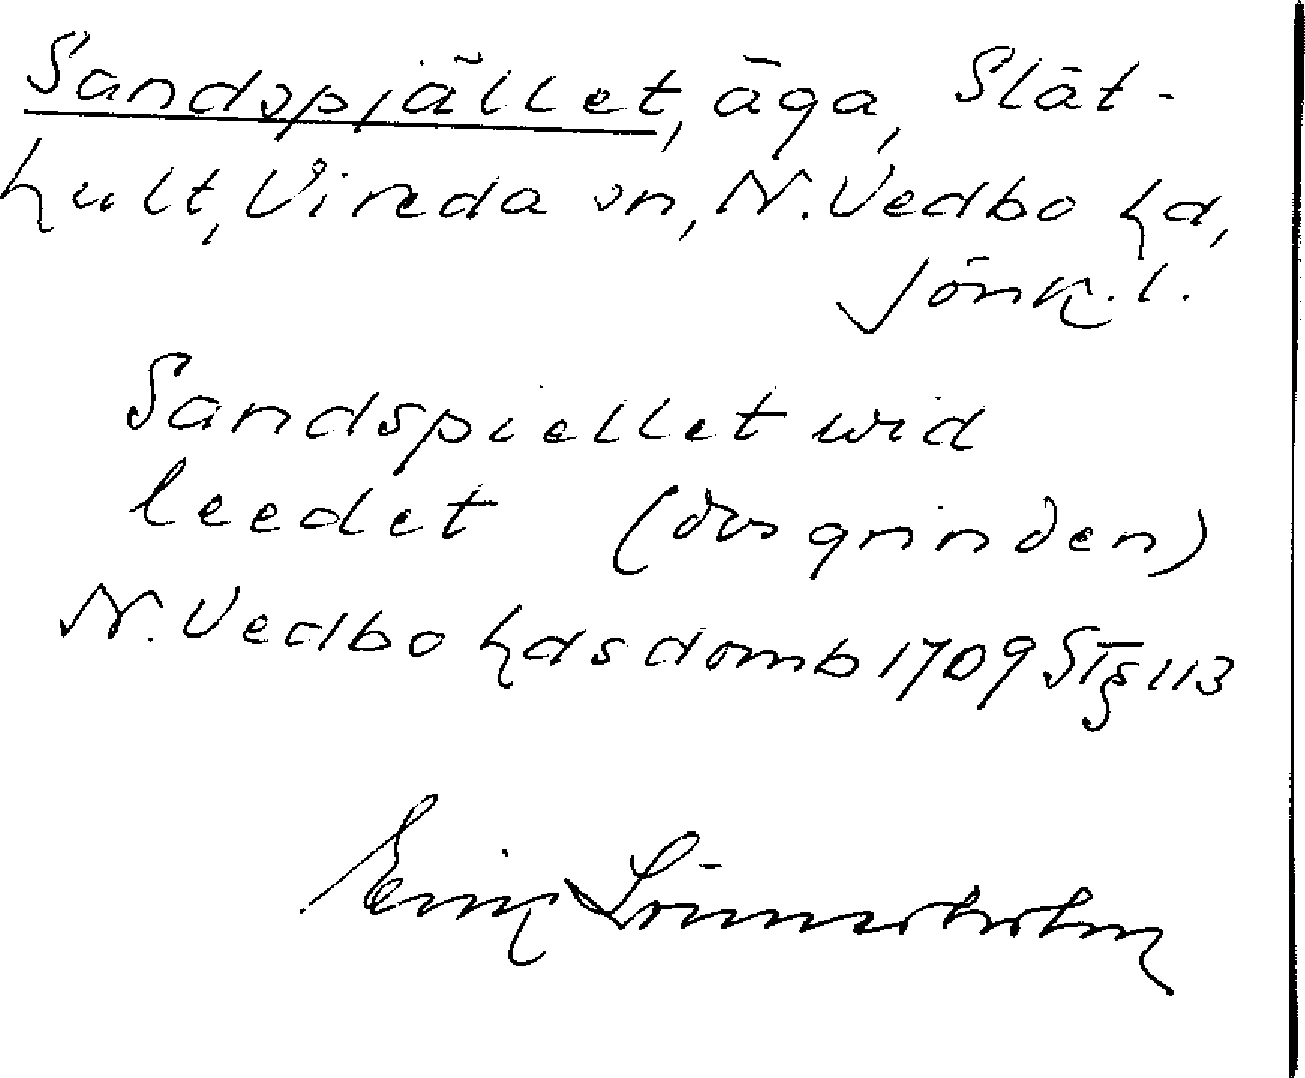 Sandspjället, äga, Slät-
hult, Vireda sn, N. Vedbo hd,
Jönk. l.
Sandspiellet wid
leedet (dvs grinden)
N. Vedbo hds domb 1709 ST § 113
Eric Lönnerholm